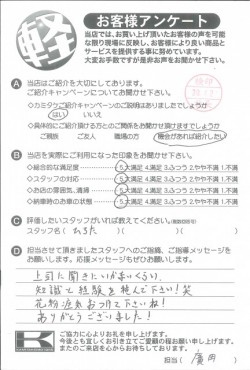 軽
お客様アンケート
当店では、お買い上げ頂いたお客様の声を可能
な限り現場に反映し、お客様により良い商品と
サービスを提供する事に努めています。
大変お手数ですが是非お声をお聞かせ下さい。
A 当店はご紹介を大切にしております。
ご紹介キャンペーンについてお聞かせ下さい。
◇カミタケご紹介キャンペーンのご説明はありましたでしょうか
はい いいえ
◇具体的にご紹介頂ける方とのご関係をお聞かせ頂けますでしょうか
ご親族 ご友人 職場の方 機会があれば紹介したい
B 当店を実際にご利用になった印象をお聞かせ下さい。
◇総合的な満足度 5.大満足 4.満足 3.ふつう 2.やや不満 1.不満
◇スタッフの対応 5.大満足 4.満足 3.ふつう 2.やや不満 1.不満
◇お店の雰囲気、清掃 5.大満足 4.満足 3.ふつう 2.やや不満 1.不満
◇納車時のお車の状態 5.大満足 4.満足 3.ふつう 2.やや不満 1.不満
C 評価したいスタッフがいれば教えてください。(複数回答可)
スタッフ名( ひろた )
D 担当させて頂きましたスタッフへのご指摘、ご指導メッセージを
お願いします。応援メッセージもぜひお願いします。
上司に聞きにいかないくらい
知識と経験を積んで下さい!笑
花粉症気をつけて下さいね!
ありがとうございました!
K
ご協力に心よりお礼を申し上げます。
今後とも宜しくお引き立てご愛顧の程お願い申し上げます。
またのご来店を心からお待ちしております。
担当( 廣田 )